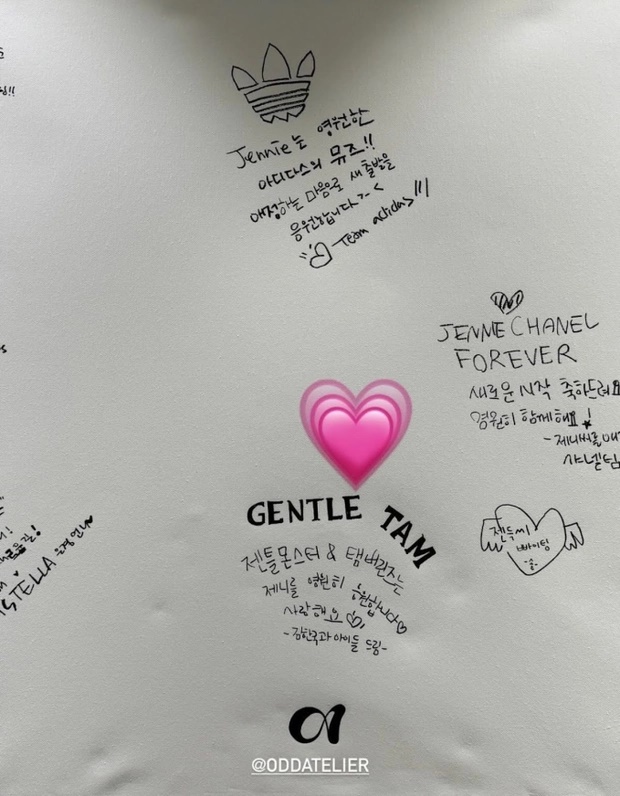 Jennie는 영원한
아디다스의 뮤즈!!
애정하는 마음으로 새 출발을
응원합니다 >.<
Team adidas!!!
JENNIE CHANEL
FOREVER
새로운 시작 축하드려요
영원히 함께해요!
샤넬팀
GENTLE TAM
젠틀몬스터 & 탬버린즈는
제니를 영원히 응원합니다
사랑해요
-김한국과 아이들 드림-
젠득씨
빠이팅
STELLA
@ODDATELIER